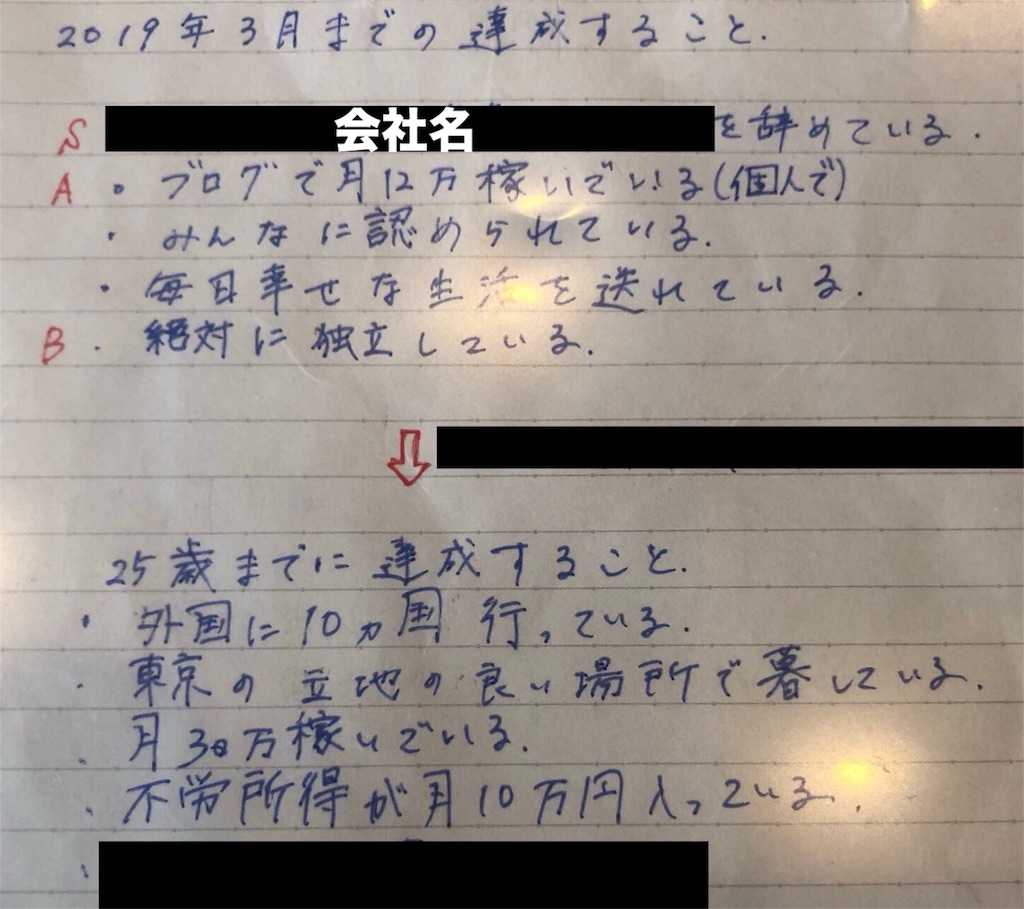 2019年3月までの達成すること.
S 会社名を辞めている.
A ・ブログで月12万稼いでいる(個人で)
・みんなに認められている.
・毎日幸せな生活を送れている.
B ・絶対に独立している.
25歳までに達成すること.
・外国に10ヵ国行っている.
・東京の立地の良い場所で暮している.
・月30万稼いでいる.
・不労所得が月10万円入っている.